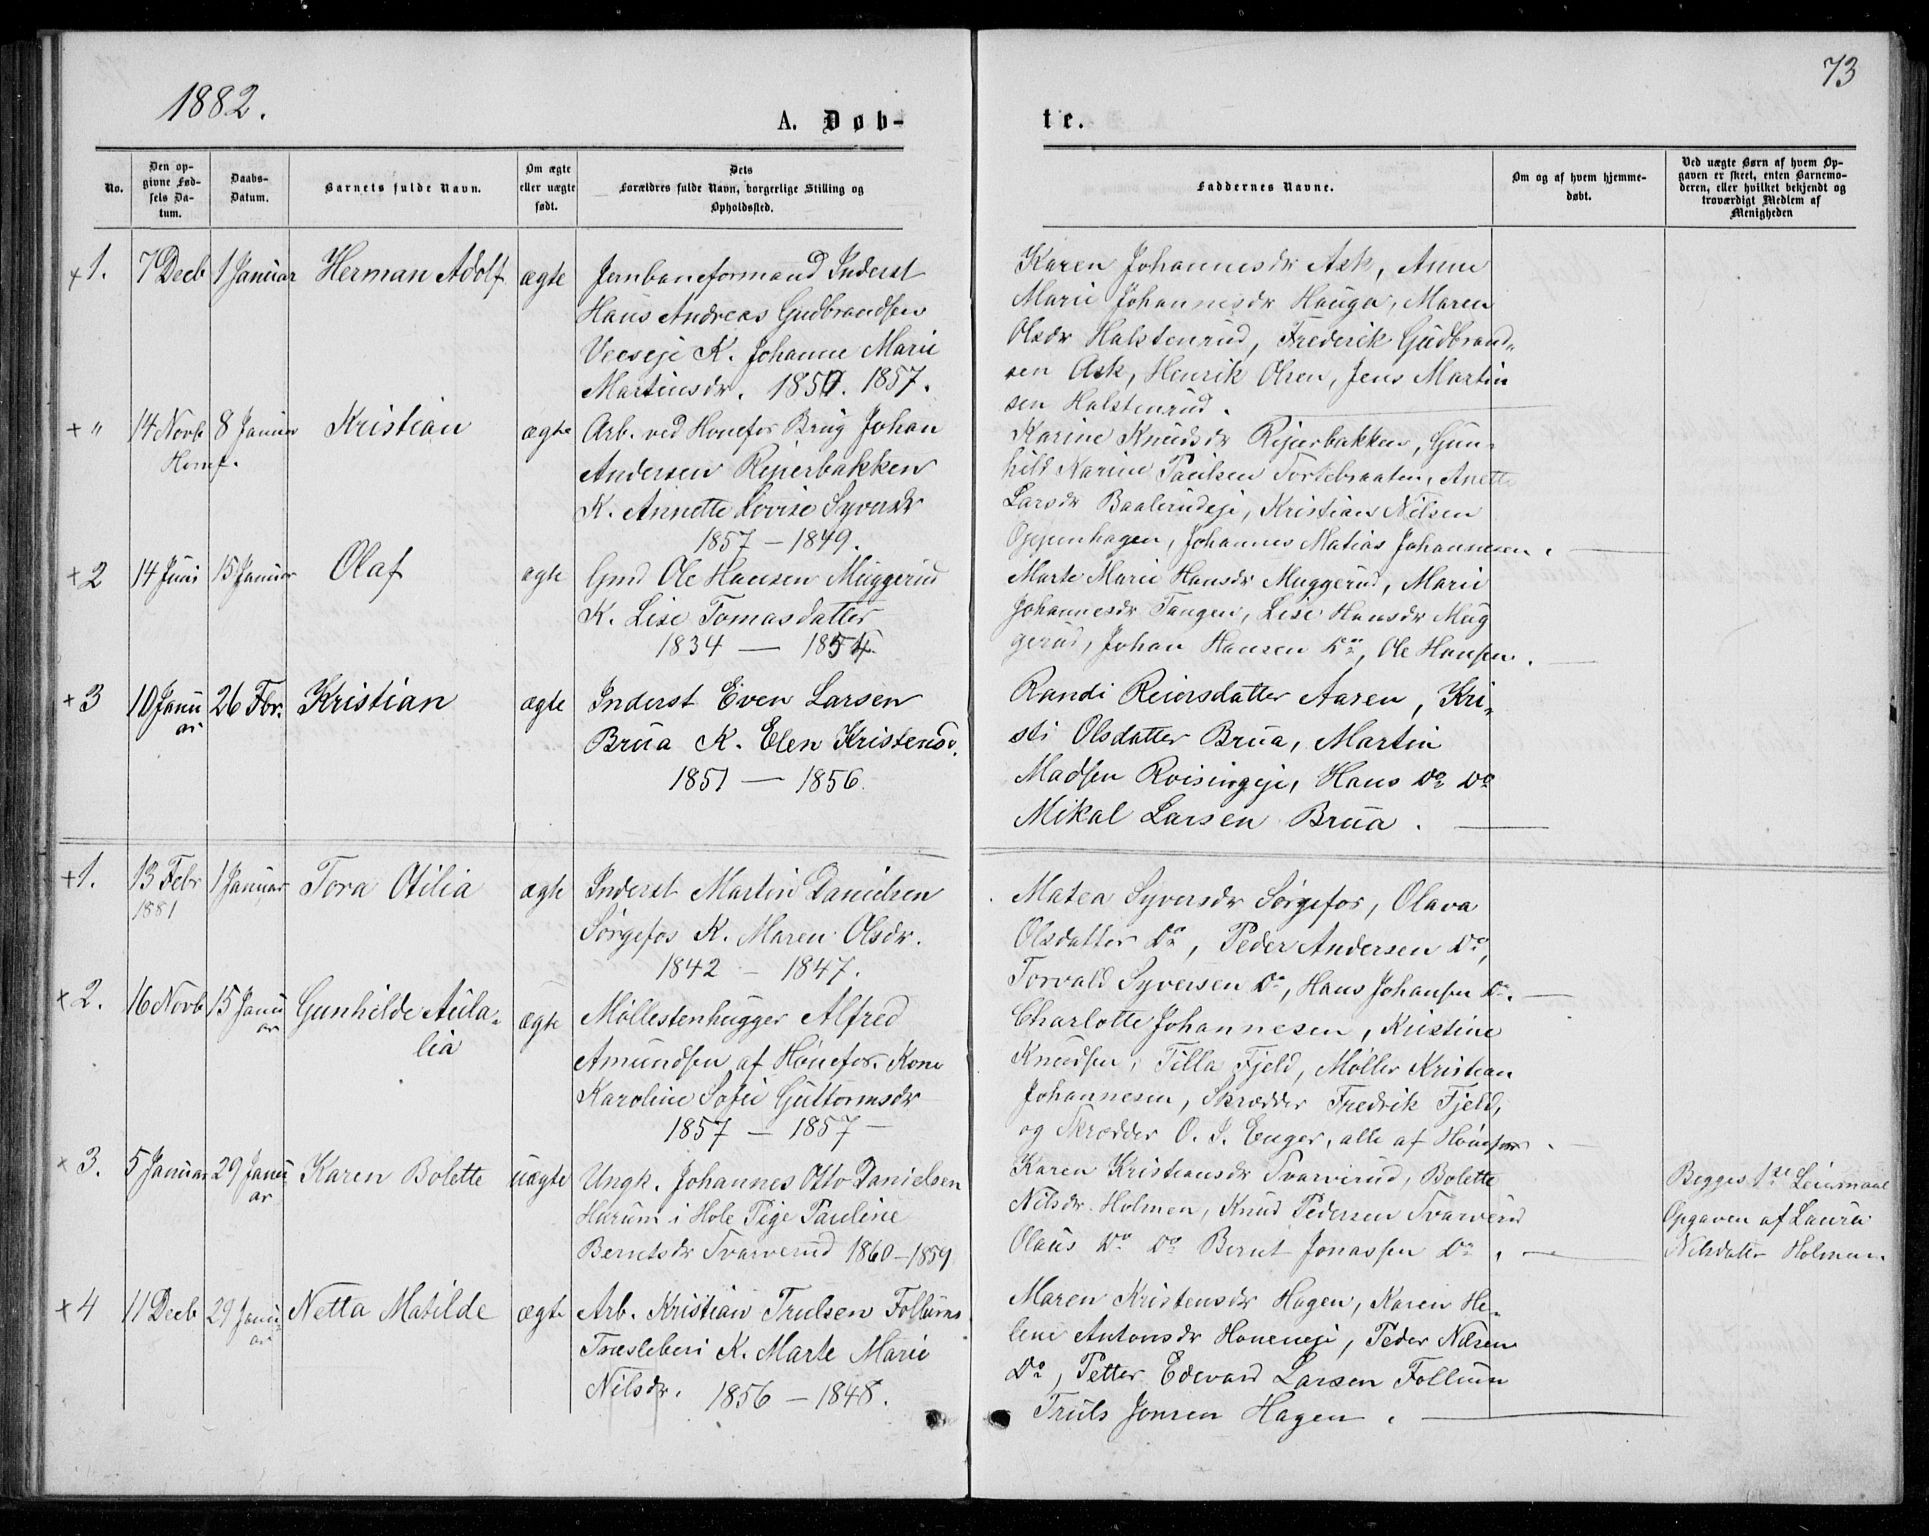 1882.
73
A. Døb-
te.
No.
Den op-
givne Fød-
sels Da-
tum.
Daabs-
Datum.
Barnets fulde Navn.
Om ægte
eller uægte
født.
Dets
Forældres fulde Navn, borgerlige Stilling og
Opholdssted.
Faddernes Navne.
Om og af hvem hjemme-
døbt.
Ved uægte Børn af hvem Op-
gaven er skeet, enten Barnemo-
deren, eller hvilket bekjendt og
troværdigt Medlem af
Menigheden
+ 1. 7 Decb 1 Januar Herman Adolf ægte
Jernbaneformand Inderst
Hans Andreas Gudbrandsen
Veeseje K. Johanne Marie
Martinsdr. 1850. 1857.
Karen Johannesdr Ask, Anne
Marie Johannesdr Hauga, Maren
Olsdr Halstenrud, Frederik Gudbrand-
sen Ask, Henrik Olsen, Jens Martin
sen Halstenrud.
+ " 14 Novb 8 Januar Kristian ægte
Honef.
Arb. ved Honefos Brug Johan
Andersen Reperbakken
K. Annette Lovise Syversdr
1857 — 1849.
Karine Knudsdr Reperbakken, Gun-
hild Narine Paulsen Tortebraaten, Anette
Larsdr Baalerudeje, Kristian Nilsen
Oppenhagen, Johannes Matias Johannesen.
+ 2 14 Juni 15 Januar Olaf ægte
Gmd Ole Hansen Muggerud
K. Lise Tomasdatter
1834 — 1854.
Marte Marie Hansdr Muggerud, Marie
Johannesdr Tangen, Lise Hansdr Mug
gerud, Johan Hansen Do, Ole Hansen.
+ 3 10 Janu 26 Fbr. Kristian ægte
ar
Inderst Even Larsen
Brua K. Elen Kristensd.
1851 — 1856.
Randi Reiersdatter Aaren, Kri-
sti Olsdatter Brua, Martin
Madsen Roisingeje, Hans Do Do
Mikal Larsen Brua.
+ 1. 13 Febr 1 Januar Tora Otilia ægte
1881
Inderst Martin Danielsen
Sørgefos K. Maren Olsdr.
1842 — 1847.
Matea Syversdr Sørgefos, Olava
Olsdatter Do, Peder Andersen Do,
Torvald Syversen Do, Hans Johansen Do.
+ 2. 16 Novb 15 Janu Gunhilde Aula-
ar lia ægte
Møllestenhugger Alfred
Amundsen af Hønefos. Kone
Karoline Sofie Guttormsdr
1857 — 1857 —
Charlotte Johannesen, Kristine
Knudsen, Tilla Fjeld, Møller Kristian
Johannesen, Skrædder Fredrik Fjeld,
og Skrædder O. S. Enger, alle af Hønefos.
+ 3. 5 Januar 29 Janu Karen Bolette uægte
ar
Ungk. Johannes Otto Danielsen
Harum i Hole Pige Pauline
Berntsdr Tvarverud 1860 — 1859
Karen Kristiansdr Tvarverud, Bolette
Nilsdr Holmen, Knud Pedersen Tvarverud
Olaus Do Do Bernt Jonassen Do.
Begges 1ste Leiermaal
Opgaven af Laura
Nilsdatter Holmen.
+ 4 11 Decb 29 Janu Netta Matilde ægte
ar
Arb. Kristian Trulsen Follums
Træsleberi K. Marte Marie
Nilsdr. 1856 — 1848.
Maren Kristensdr Hagen, Karen He-
lene Antonsdr Honeneje, Peder Nilsen
Do, Petter Edevard Larsen Follum
Truls Jonsen Hagen.